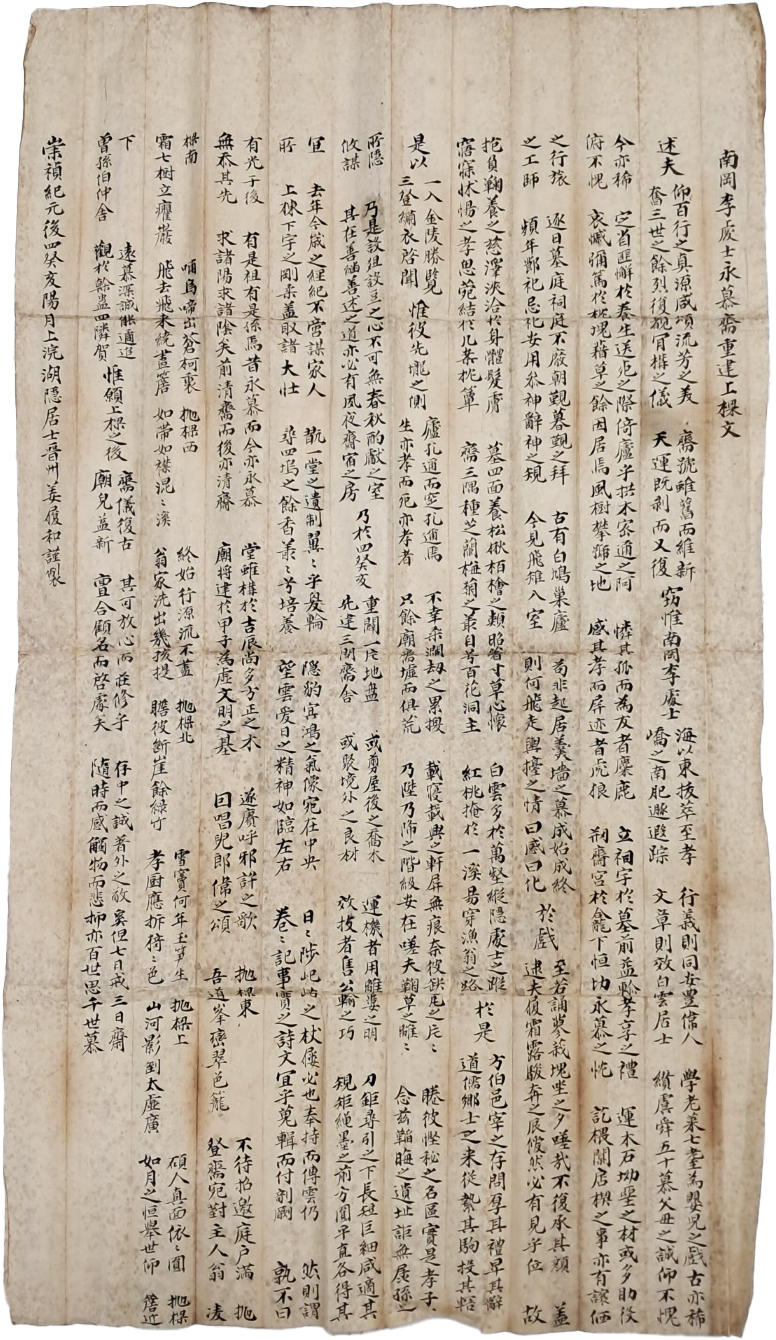 南岡李處士永慕齋重建上樑文
述夫
仰百行之眞源咸頌流芳之美
奮三世之餘烈復覩肯構之儀
齋號雖舊而維新
天運旣剝而又復
竊惟南岡李處士
海以東拔萃至孝
嶠之南肥遯遐踪
行義則同安豊偉人
文草則效白雲居士
學老萊七耋爲嬰兒之戱古亦稀
纘虞舜五十慕父母之誠仰不愧
今亦稀
俯不愧
定省匪懈於養生送死之際倚廬乎拱木密邇之阿
哀慽彌篤於枕塊藉草之餘因居焉風樹攀號之地
憐其孤而爲友者麋鹿
感其孝而屛迹者虎狼
立祠宇於墓前益驗孝享之禮
刱齋宮於龕下恒切永慕之忱
運木石坳堊之材或多助役
記椳闑居楔之事亦有讓価
之行旅
之工師
逐日墓庭祠庭不廢朝覲暮覲之拜
頻年酆祀忌祀安用叅神辭神之規
古有白鳩巢廬
今見飛雉入室
苟非起居羹墻之慕成始成終
則何飛走輿擡之情曰感曰化
於戱
至若誦莪栽塊坐之夕嗟哉不復承其顔
逮夫履霜露駿奔之辰僾然必有見乎位
蓋
故
抱負鞠養之慈澤浹洽於身軆髮膚
寤寐怵惕之孝思菀結於几案枕簟
墓四面養松楸栢檜之類昭昝寸草心懷
齋三隅種芝蘭梅菊之叢自号百花洞主
白雲多於萬壑縱隱處士之蹤
紅桃掩於一溪易穿漁翁之路
於是
方伯邑宰之存問厚其禮卑其辭
道儒鄕士之來從縶其駒投其轄
是以
一入金陵勝覽
三登繡衣啓聞
惟彼先壠之側
廬孔邇而窆孔邇焉
生亦孝而死亦孝者
不幸桑瀾劫之累換
只餘廟齋墟而俱荒
載寢載興之軒屛無痕奈彼缺瓦之片片
乃陞乃降之階級安在嗟夫鞠草之離離
睠彼慳秘之名區實是孝子
念玆韜晦之遺址詎無孱孫之
所隱
攸謀
乃是設俎設豆之心不可無春秋酌獻之室
其在善繼善述之道亦必有夙夜齋宿之房
乃於四癸亥
重開一片地盤
先建三間齋舍
或剪屋後之喬木
或取境外之良材
運機者用離婁之明
效技者售公輸之巧
刀鉅尋引之下長短巨細咸適其
規矩繩墨之前方圓平直各得其
宜
所
去年今歲之經紀不啻謀家人
上棟下宇之剛柔蓋取諸大壯
翫一堂之遺制翼翼乎髮輪
尋四塢之餘香菶菶兮培養
隱豹冥鴻之氣像宛在中央
望雲愛日之精神如臨左右
日日陟屺岵之杖屨必也奉持而傳雲仍
卷卷記事實之詩文宜乎蒐輯而付剞劂
然則謂
孰不曰
有光于後
無忝其先
有是祖有是孫焉昔永慕而今亦永慕
求諸陽求諸陰矣前清齋而後亦清齋
堂雖構於吉辰尚多方正之木
廟將建於甲子爲虛文明之基
遂賡呼邪許之歌
因唱兒郎偉之頌
抛樑東
吾道峯巒翠色籠
不待招邀庭戶滿
登齋宛對主人翁
抛
凌
樑南
霜七樹立癯巖
哺烏啼出蒼柯裏
飛去飛來繞畫簷
抛樑西
如帶如襟混混溪
終始行源流不盡
翁家洗出幾孩提
抛樑北
瞻彼斷崖餘綠竹
雪寶何年玉笋生
孝廚應拆猗猗色
抛樑上
山河影到太虛廣
碩人眞面依依圓
如月之恒擧世仰
抛樑
簷近
下
曾孫伯仲舍
遠慕深誠能適追
觀於幹蠱四隣賀
惟願上樑之後
齋儀復古
廟皃益新
其可放心而莊修乎
宜今顧名而啓處矣
存中之誠著外之敬奚但七日戒三日齋
隨時而感觸物而悲抑亦百世思千世慕
崇禎紀元後四癸亥陽月上浣湖隱居士晉州姜履和謹製